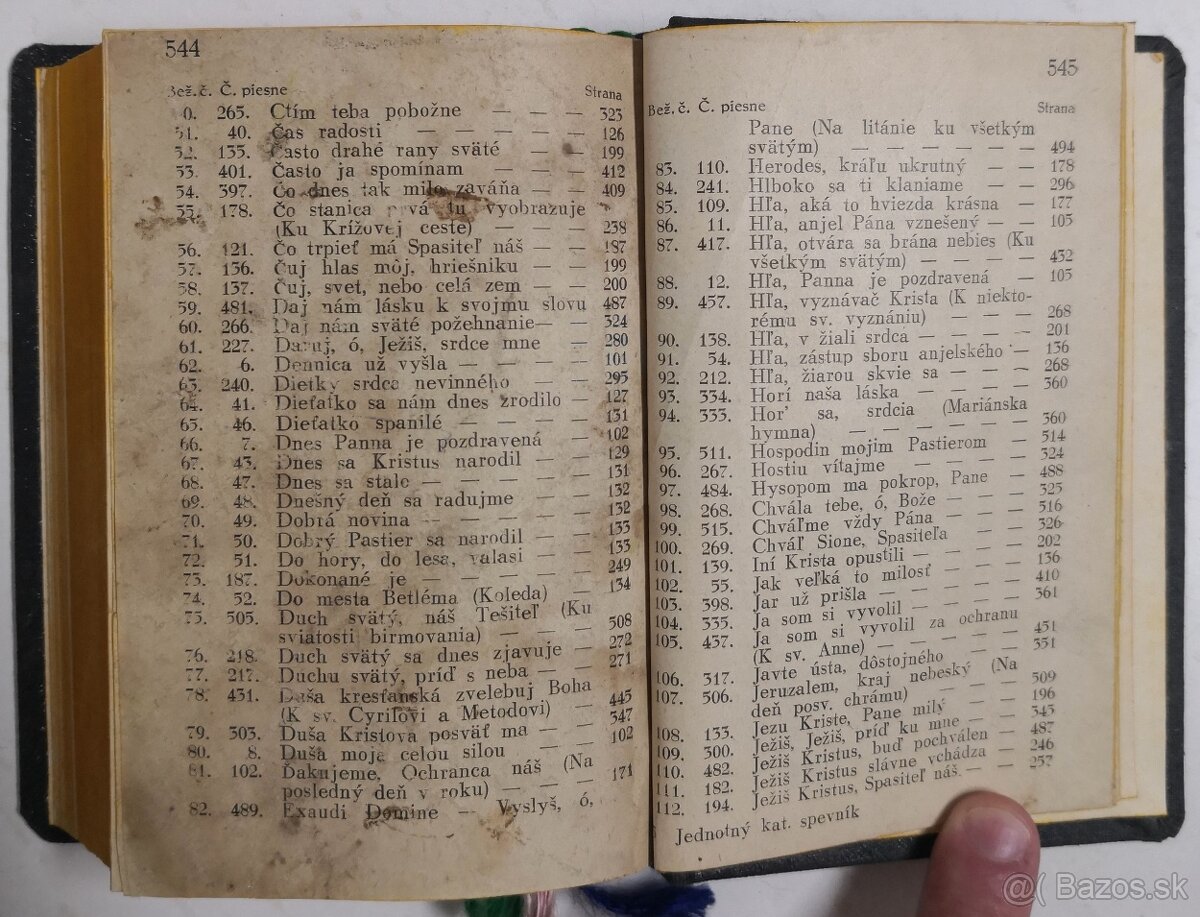 544
Bež.č. Č. piesne Strana
0. 265. Ctím teba pobožne — — — 323
51. 40. Čas radosti — — — — — 126
52. 135. Často drahé rany sväté — — 199
53. 401. Často ja spomínam — — — 412
54. 397. Čo dnes tak milo zaváňa — — 409
55. 178. Čo stanica prvá tu vyobrazuje
(Ku Krížovej ceste) — — — 238
56. 121. Čo trpieť má Spasiteľ náš — — 187
57. 136. Čuj hlas môj, hriešniku — — 199
58. 137. Čuj, svet, nebo celá zem — — 200
59. 481. Daj nám lásku k svojmu slovu 487
60. 266. Daj nám sväté požehnanie — — 324
61. 227. Daruj, ó, Ježiš, srdce mne — 280
62. 6. Dennica už vyšla — — — — 101
63. 240. Dietky srdca nevinného — — 295
64. 41. Dieťatko sa nám dnes zrodilo — 127
65. 46. Dieťatko spanilé — — — — 131
66. 7. Dnes Panna je pozdravená — 102
67. 43. Dnes sa Kristus narodil — — 129
68. 47. Dnes sa stalo — — — — — 131
69. 48. Dnešný deň sa radujme — — 132
70. 49. Dobrá novina — — — — — 132
71. 50. Dobrý Pastier sa narodil — — 133
72. 51. Do hory, do lesa, valasi — — 133
73. 187. Dokonané je — — — — — 249
74. 52. Do mesta Betléma (Koleda) — — 134
75. 505. Duch svätý, náš Tešiteľ (Ku
sviatosti birmovania) — — — 508
76. 218. Duch svätý sa dnes zjavuje — 272
77. 217. Duchu svätý, príď s neba — — 271
78. 431. Duša kresťanská zvelebuj Boha
(K sv. Cyrilovi a Metodovi) — 445
79. 303. Duša Kristova posväť ma — — 347
80. 8. Duša moja celou silou — — 102
81. 102. Ďakujeme, Ochranca náš (Na
posledný deň v roku) — — — 171
82. 489. Exaudi Domine — Vyslyš, ó,
545
Bež. č. Č. piesne Strana
Pane (Na litánie ku všetkým
svätým) — — — — — — 494
83. 110. Herodes, kráľu ukrutný — — 178
84. 241. Hlboko sa ti klaniame — — 296
85. 109. Hľa, aká to hviezda krásna — 177
86. 11. Hľa, anjel Pána vznešený — — 105
87. 417. Hľa, otvára sa brána nebies (Ku
všetkým svätým) — — — — 432
88. 12. Hľa, Panna je pozdravená — 105
89. 457. Hľa, vyznávač Krista (K niekto-
rému sv. vyznániu) — — — 268
90. 138. Hľa, v žiali srdca — — — — 201
91. 54. Hľa, zástup sboru anjelského — 136
92. 212. Hľa, žiarou skvie sa — — — 268
93. 334. Horí naša láska — — — — 360
94. 333. Hor' sa, srdcia (Mariánska
hymna) — — — — — — 360
95. 511. Hospodin mojim Pastierom — 514
96. 267. Hostiu vítajme — — — — 324
97. 484. Hysopom ma pokrop, Pane — 488
98. 268. Chvála tebe, ó, Bože — — — 325
99. 515. Chváľme vždy Pána — — — 516
100. 269. Chváľ Sione, Spasiteľa — — 326
101. 139. Iní Krista opustili — — — — 202
102. 55. Jak veľká to milosť — — — 136
103. 398. Jar už prišla — — — — — 410
104. 335. Ja som si vyvolil — — — — 361
105. 437. Ja som si vyvolil za ochranu
(K sv. Anne) — — — — — 451
106. 317. Javte ústa, dôstojného — — — 351
107. 506. Jeruzalem, kraj nebeský (Na
deň posv. chrámu) — — — 509
108. 133. Jezu Kriste, Pane milý — — 196
109. 300. Ježiš, Ježiš, príď ku mne — — 343
110. 482. Ježiš Kristus, buď pochválen — 487
111. 182. Ježiš Kristus slávne vchádza — 246
112. 194. Ježiš Kristus, Spasiteľ náš — — 257
Jednotný kat. spevník
@( Bazos.sk